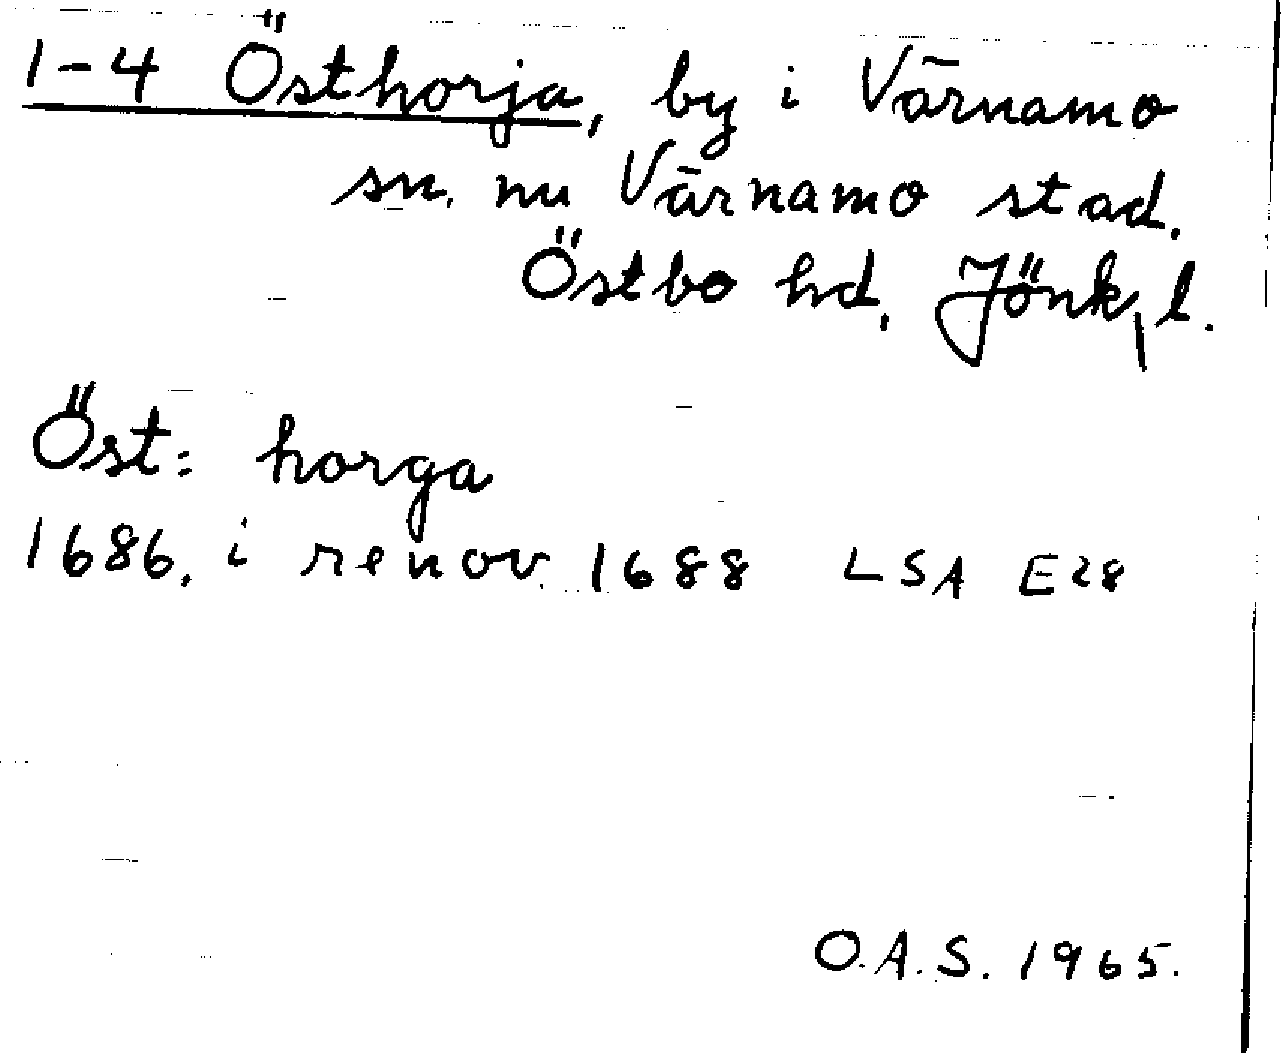 1-4 Östhorja, by i Värnamo
sn. nu Värnamo stad.
Östbo hd, Jönk, l.
Öst: horga
1686, i renov. 1688 LSA E28
O.A.S. 1965.